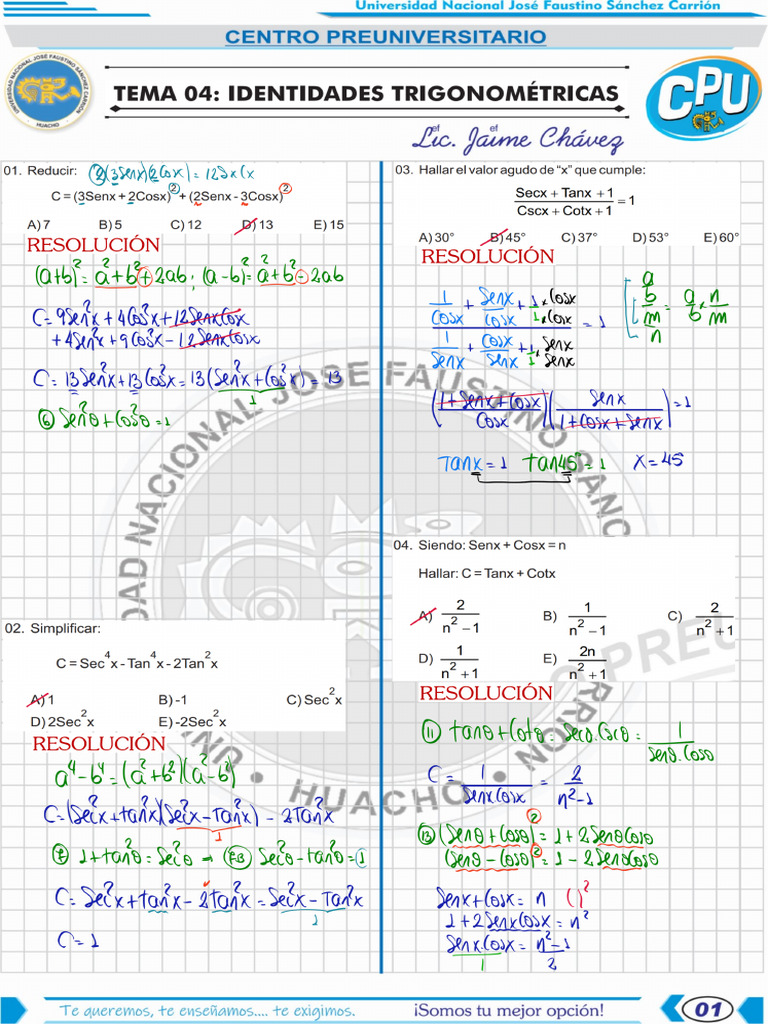 Universidad Nacional José Faustino Sánchez Carrión
CENTRO PREUNIVERSITARIO
UNIVERSIDAD NACIONAL JOSÉ FAUSTINO SÁNCHEZ CARRIÓN
HUACHO
TEMA 04: IDENTIDADES TRIGONOMÉTRICAS
CPU
Lic. Jaime Chávez
01. Reducir: 2(3Senx)(2Cosx) = 12SxCx
C = (3Senx + 2Cosx)² + (2Senx - 3Cosx)²
A) 7 B) 5 C) 12 D) 13 E) 15
RESOLUCIÓN
(a+b)² = a² + b² + 2ab ; (a-b)² = a² + b² - 2ab
C = 9Sen²x + 4Cos²x + 12SenxCosx
+ 4Sen²x + 9Cos²x - 12SenxCosx
C = 13Sen²x + 13Cos²x = 13(Sen²x + Cos²x) = 13
1
6 Sen²θ + Cos²θ = 1
02. Simplificar:
C = Sec⁴x - Tan⁴x - 2Tan²x
A) 1 B) -1 C) Sec²x
D) 2Sec²x E) -2Sec²x
RESOLUCIÓN
a⁴ - b⁴ = (a² + b²)(a² - b²)
C = (Sec²x + tan²x)(Sec²x - Tan²x) - 2Tan²x
1
7 1 + tan²θ = Sec²θ → 7B Sec²θ - tan²θ = 1
C = Sec²x + tan²x - 2tan²x = Sec²x - Tan²x
1
C = 1
03. Hallar el valor agudo de “x” que cumple:
Secx + Tanx + 1 / Cscx + Cotx + 1 = 1
A) 30° B) 45° C) 37° D) 53° E) 60°
RESOLUCIÓN
1/Cosx + Senx/Cosx + 1/1 x Cosx/Cosx
= 1
1/Senx + Cosx/Senx + 1/1 x Senx/Senx
a/b / m/n = a/b x n/m
(1 + Senx + Cosx / Cosx)(Senx / 1 + Cosx + Senx) = 1
Tanx = 1 tan45° = 1 x = 45
04. Siendo: Senx + Cosx = n
Hallar: C = Tanx + Cotx
A) 2/n² − 1 B) 1/n² − 1 C) 2/n² + 1
D) 1/n² + 1 E) 2n/n² + 1
RESOLUCIÓN
11 tanθ + Cotθ = Secθ.Cscθ = 1/Senθ.Cosθ
C = 1/SenxCosx = 2/n² - 1
13 (Senθ + Cosθ)² = 1 + 2SenθCosθ
(Senθ - Cosθ)² = 1 - 2SenθCosθ
Senx + Cosx = n ( )²
1 + 2SenxCosx = n²
Senx.Cosx/1 = n² - 1/2
Te queremos, te enseñamos.... te exigimos.
¡Somos tu mejor opción!
01